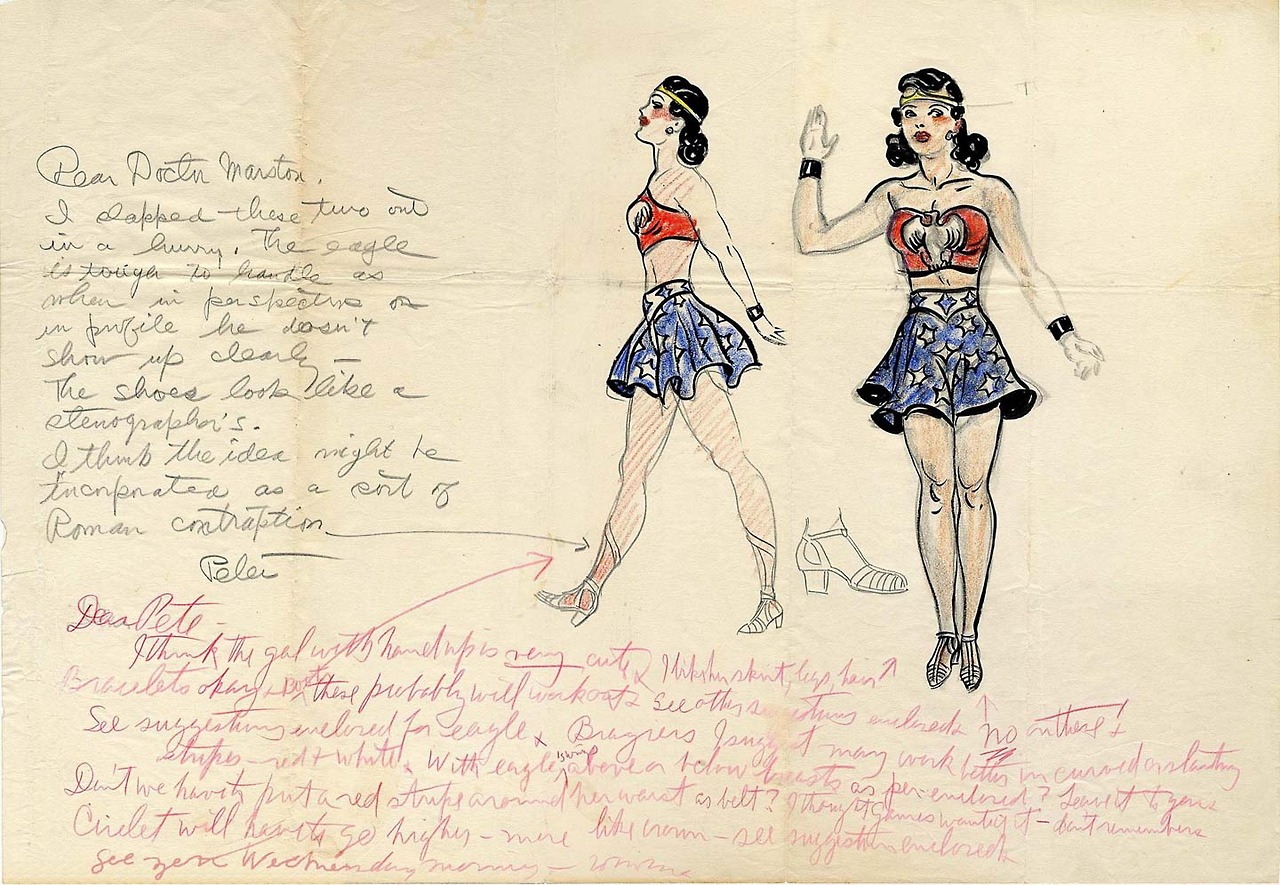 Dear Doctor Marston,
I slapped these two out
in a hurry. The eagle
is tough to handle as
when in perspective or
in profile he doesn't
show up clearly —
The shoes look like a
stenographer's.
I think the idea might be
incorporated as a sort of
Roman contraption
Peter
Dear Pete -
I think the gal with hand up is very cute. I like her skirt, legs, hair
Bracelets okay + boots these probably will work out. See other suggestions enclosed. No on these!
See suggestions enclosed for eagle. Brazziers I suggest may work better in curved or slanting
stripes - red + white. With eagle's wing above or below breasts as per enclosed? Leave it to you.
Don't we have to put a red stripe around her waist as belt? I thought Gaines wanted it - don't remember.
Circlet will have to go higher - more like crown - see suggestion enclosed.
See you Wednesday morning -